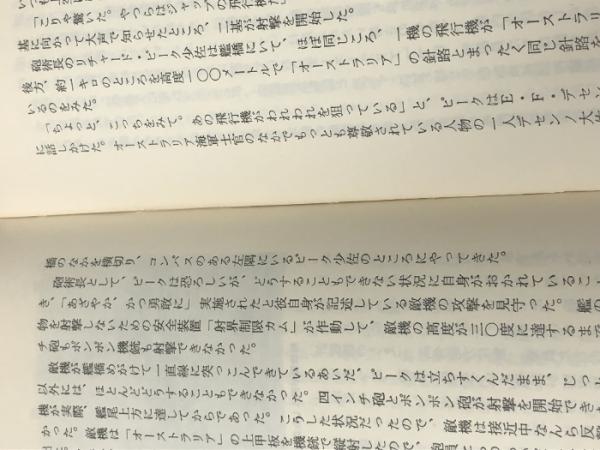 「こりゃ驚いた。やつらはジャップの飛行機だ
基に向かって大声で知らせたところ、二基が射撃を開始した。
砲術長のリチャード・ピーク少佐は艦橋にいて、ほぼ同じころ、一機の飛行機が「オーストラリ
後方、約一キロのところを高度一〇〇メートルで「オーストラリア」の針路とまったく同じ針路を
いるのをみた。
「ちょっと、こっちをみて。あの飛行機がわれわれを狙っている」と、ピークはE・F・デセン
に話しかけた。オーストラリア海軍士官のなかでもっとも尊敬されている人物の一人デセンノ大
橋のなかを横切り、コンパスのある左隅にいるピーク少佐のところにやってきた。
砲術長として、ピークは恐ろしいが、どうすることもできない状況に自身がおかれているこ
き、「あざやか、かつ勇敢に」実施されたと彼自身が記述している敵機の攻撃を見守った。艦の
物を射撃しないための安全装置「射界制限カム」が作動して、敵機の高度が三〇度に達するまで
チ砲もポンポン機銃も射撃できなかった。
敵機が艦橋めがけて一直線に突っこんできているあいだ、ピークは立ちすくんだまま、じっ
以外には、ほとんどどうすることもできなかった。四インチ砲とポンポン砲が射撃を開始できた
機が実際、艦尾上方に達してからであった。こうした状況だったので、敵機は接近中なんら反撃
かった。敵機は「オーストラリア」の上甲板を機銃で縦射したので、砲員